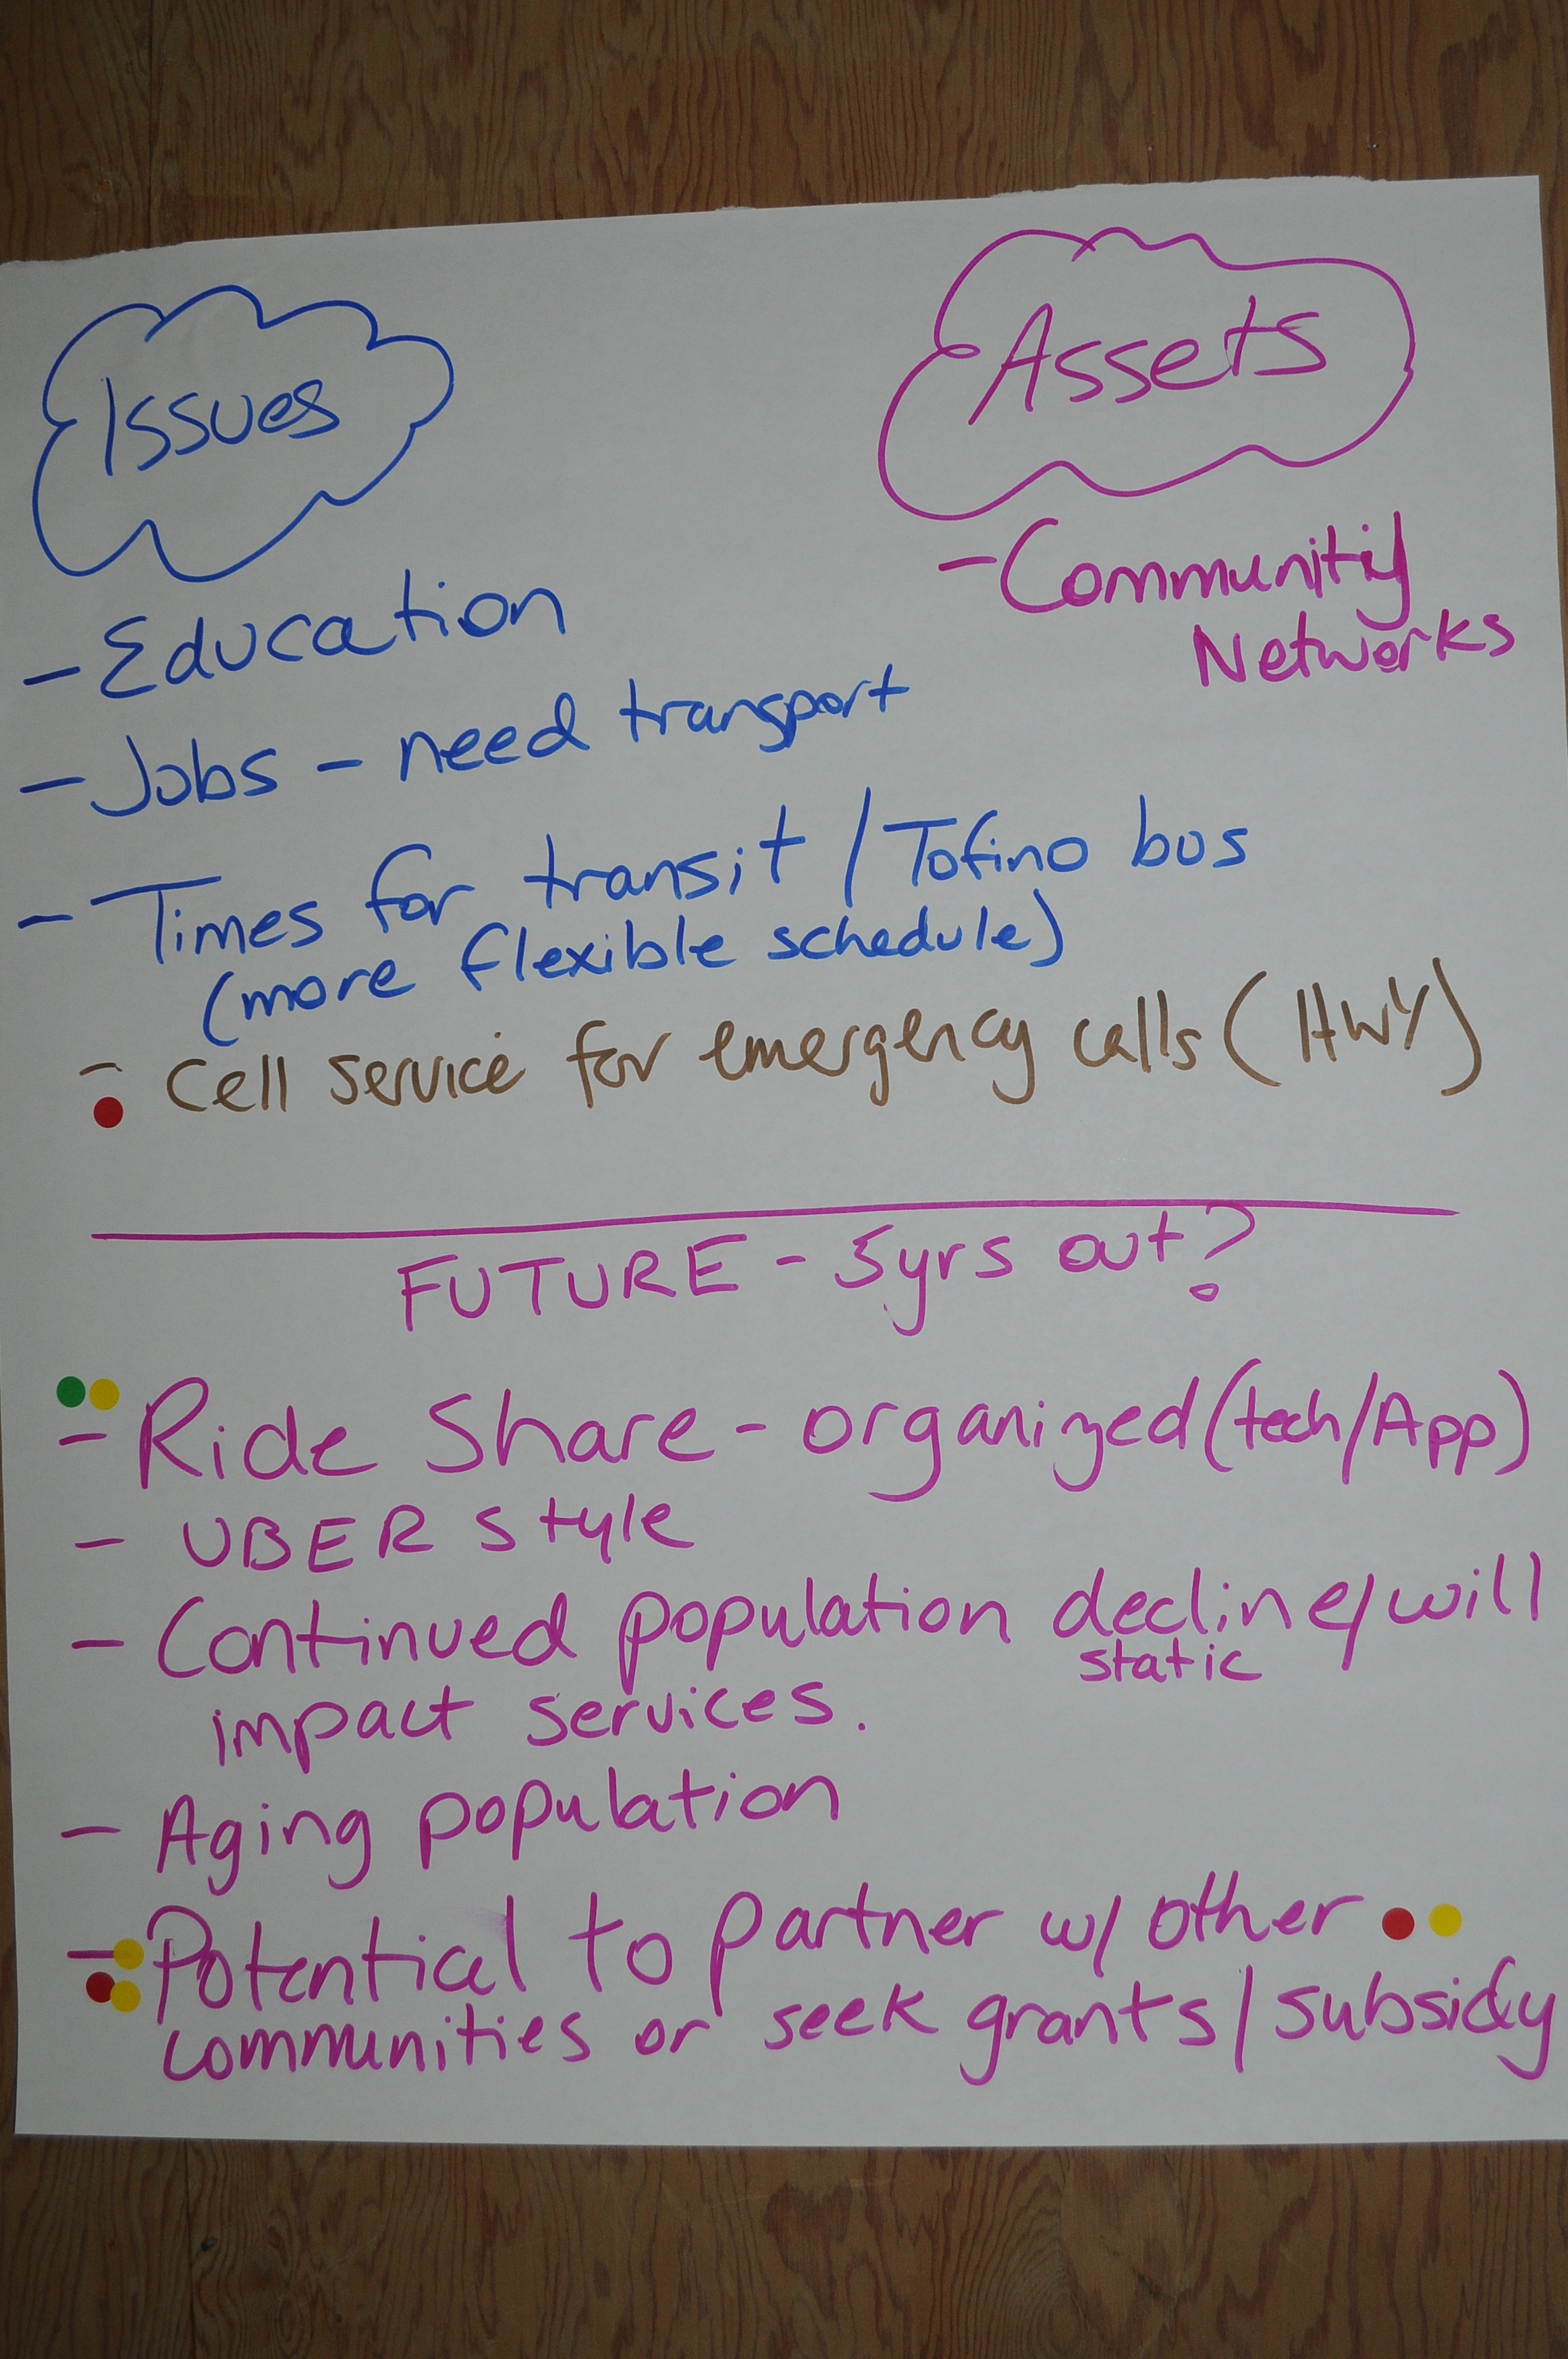 Issues
- Education
- Jobs - need transport
- Times for transit / Tofino bus
(more flexible schedule)
- Cell service for emergency calls (HWY)
Assets
- Community
Networks
FUTURE - 5yrs out?
- Ride Share - organized (tech/App)
- UBER style
- Continued population decline/will
static
impact services.
- Aging population
- Potential to partner w/ other
communities or seek grants/subsidy